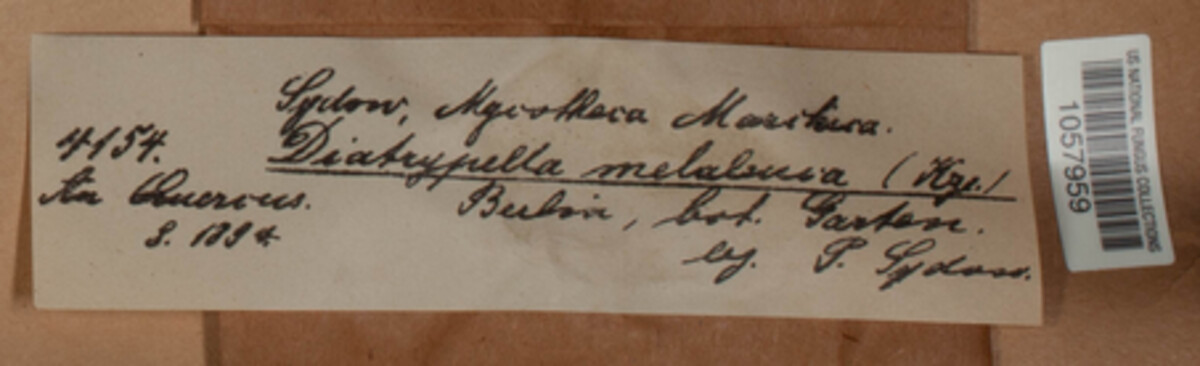 Sydow, Mycotheca Marchica.
4154. Diatrypella melaleuca (Kze.)
An Quercus. Berlin, bot. Garten.
3. 1894 leg. P. Sydow.
US NATIONAL FUNGUS COLLECTIONS
1057959